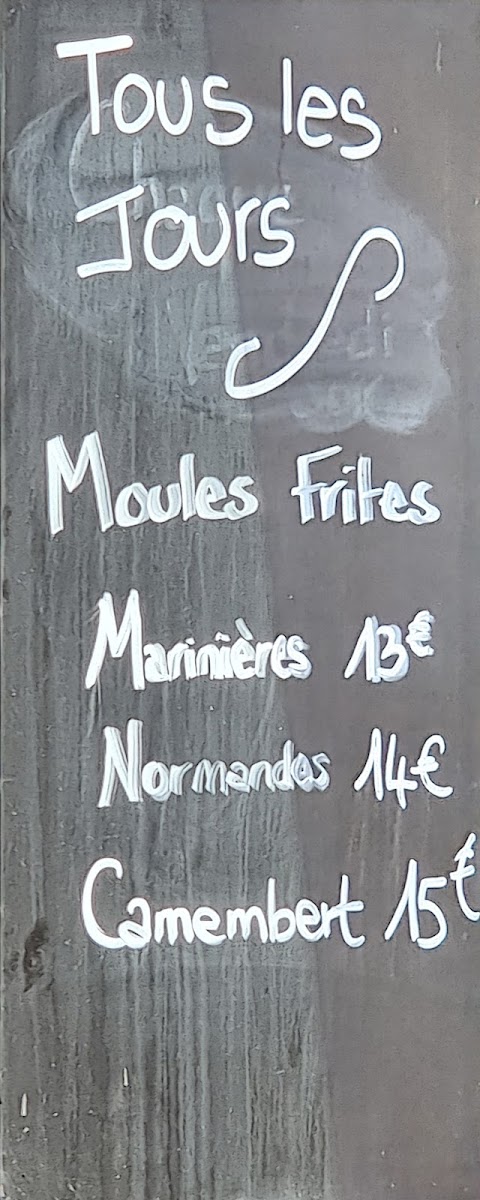 Tous les
Jours
Moules Frites
Marinières 13€
Normandes 14€
Camembert 15€